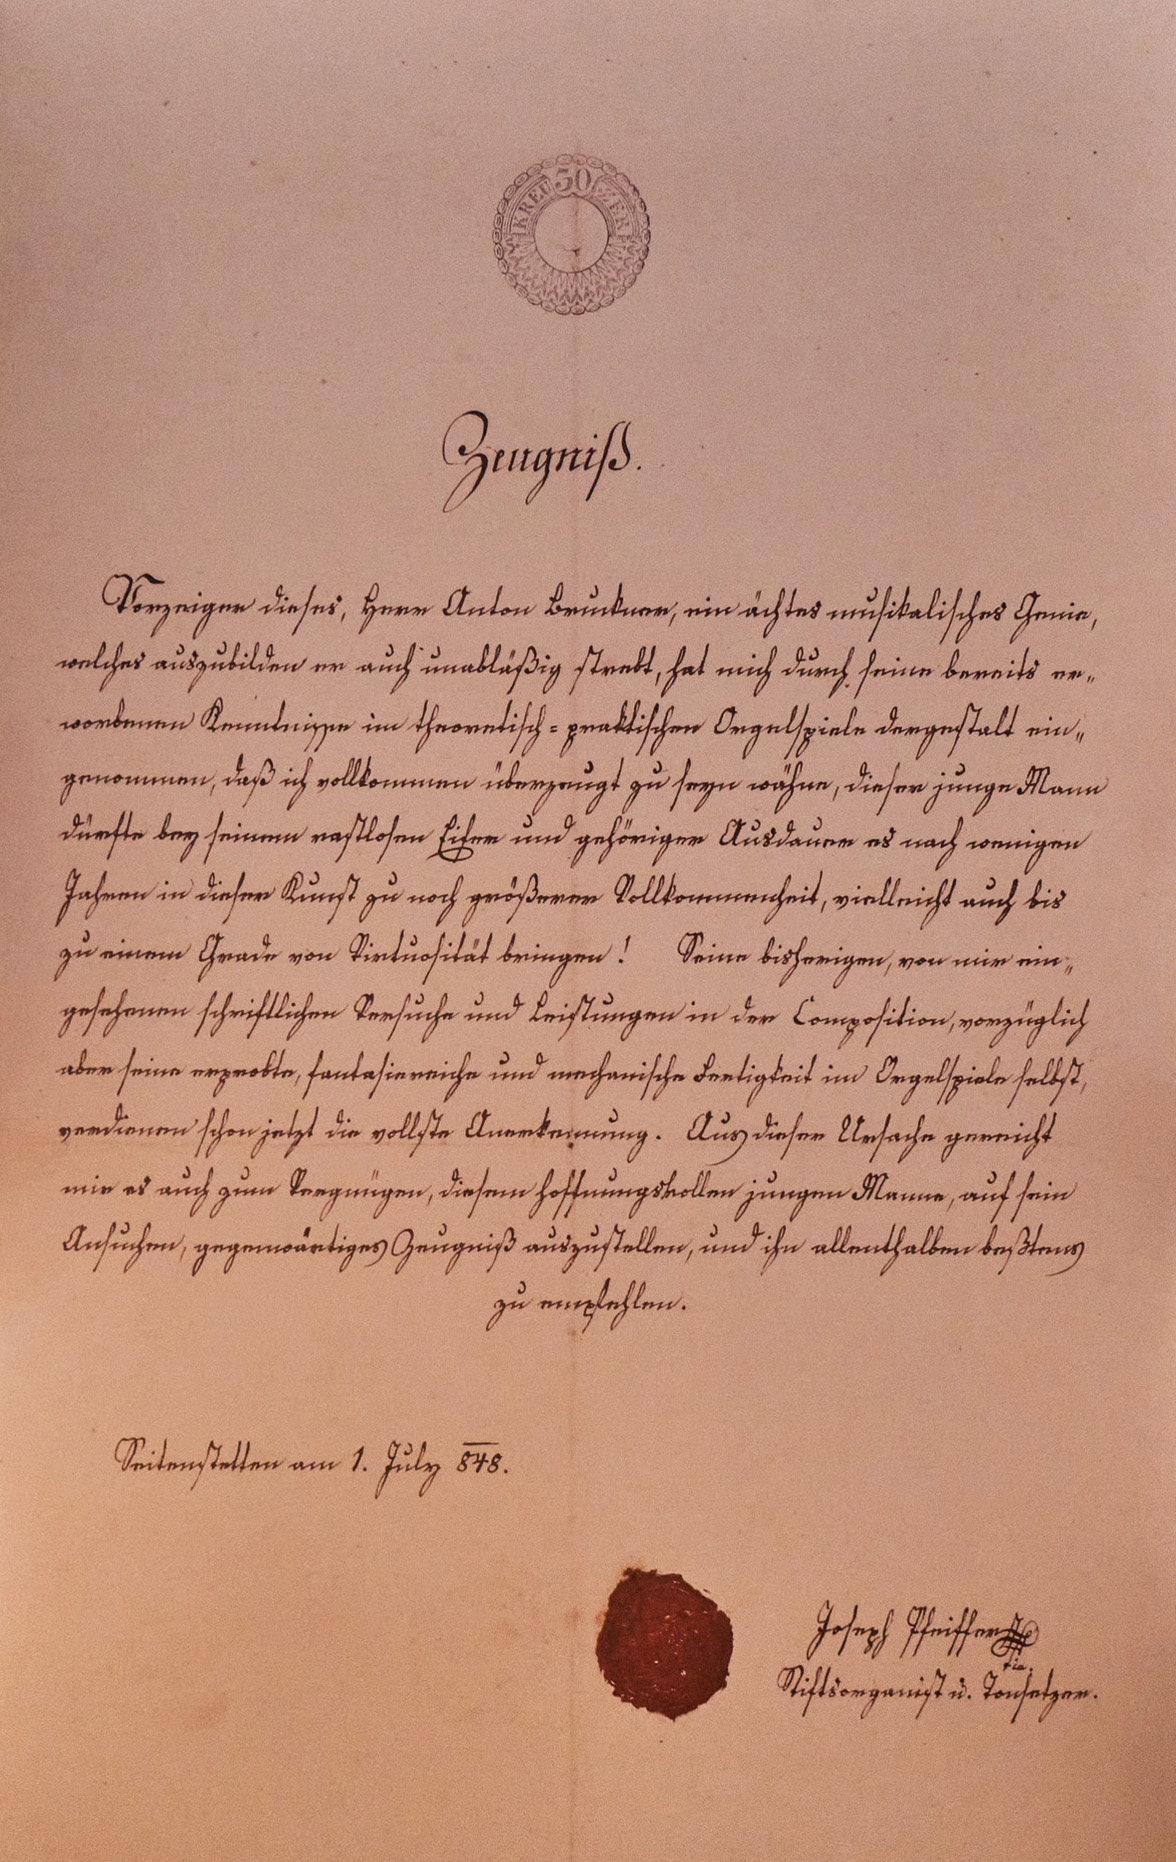 30
KREUZER
Zeugniß.
Vorzeiger dieses, Herr Anton Bruckner, ein ächtes musikalisches Genie,
welches auszubilden er auch unabläßig strebt, hat mich durch seine bereits er„
worbenen Kenntnisse im theoretisch=praktischen Orgelspiele dergestalt ein„
genommen, daß ich vollkommen überzeugt zu seyn wähne, dieser junge Mann
dürfte bey seinem rastlosen Eifer und gehöriger Ausdauer es nach wenigen
Jahren in dieser Kunst zu noch größerer Vollkommenheit, vielleicht auch bis
zu einem Grade von Virtuosität bringen! Seine bisherigen, von mir ein„
gesehenen schriftlichen Versuche und Leistungen in der Composition, vorzüglich
aber seine erprobte, fantasiereiche und mechanische Fertigkeit im Orgelspiele selbst,
verdienen schon jetzt die vollste Anerkennung. Aus dieser Ursache gereicht
mir es auch zum Vergnügen, diesem hoffnungsvollen jungen Manne, auf sein
Ansuchen, gegenwärtiges Zeugniß auszustellen, und ihn allenthalben beßtens
zu empfehlen.
Seitenstetten am 1. July 848.
Joseph Pfeiffer
Stiftsorganist u. Tonsetzer.